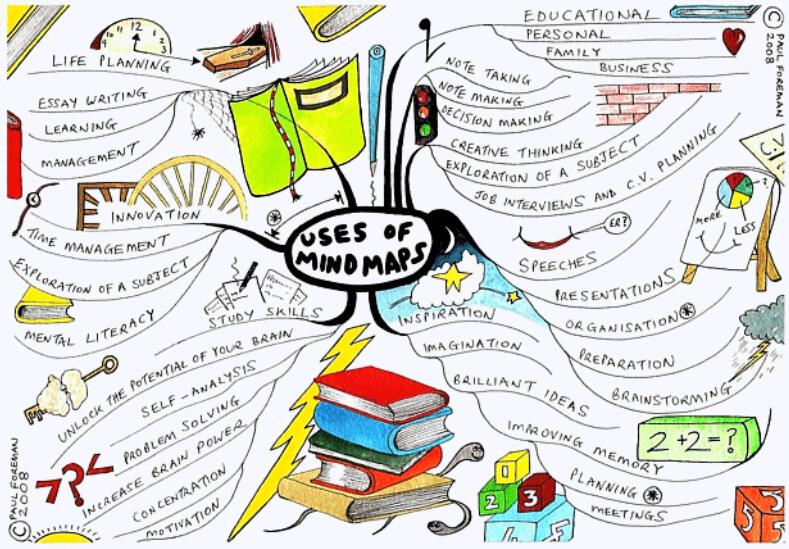 USES OF
MIND MAPS
EDUCATIONAL
PERSONAL
FAMILY
BUSINESS
© PAUL FOREMAN
2008
NOTE TAKING
NOTE MAKING
DECISION MAKING
CREATIVE THINKING
EXPLORATION OF A SUBJECT
JOB INTERVIEWS AND C.V. PLANNING
C.V.
ER?
SPEECHES
?
MORE
LESS
PRESENTATIONS
ORGANISATION
PREPARATION
BRAINSTORMING
INSPIRATION
IMAGINATION
BRILLIANT IDEAS
2+2=?
IMPROVING MEMORY
PLANNING
MEETINGS
1
2 3
4
5
5
12
3
LIFE PLANNING
ESSAY WRITING
LEARNING
MANAGEMENT
INNOVATION
TIME MANAGEMENT
EXPLORATION OF A SUBJECT
MENTAL LITERACY
STUDY SKILLS
UNLOCK THE POTENTIAL OF YOUR BRAIN
SELF-ANALYSIS
PROBLEM SOLVING
INCREASE BRAIN POWER
CONCENTRATION
MOTIVATION
?
© PAUL FOREMAN
2008